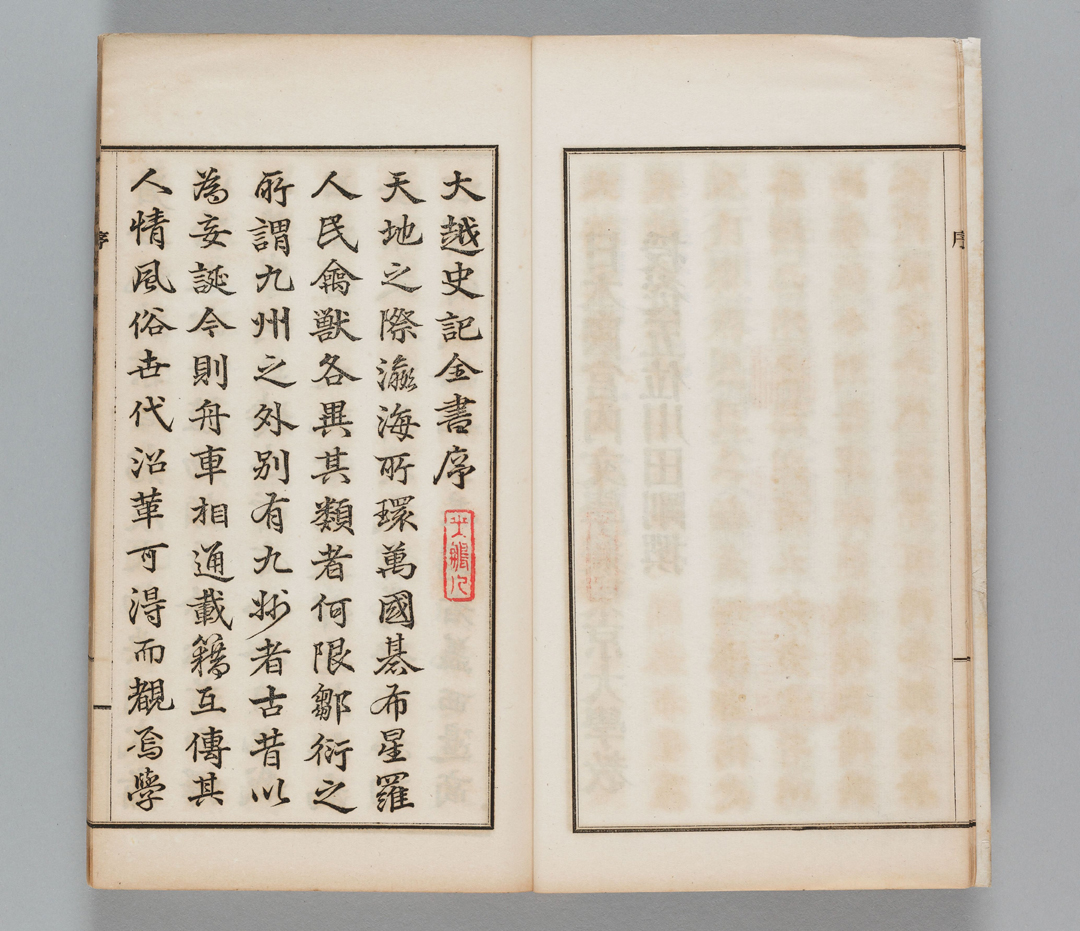 大越史記全書序
天地之際瀛海所環萬國棊布星羅
人民禽獸各異其類者何限鄒衍之
所謂九州之外別有九州者古昔以
為妄誕今則舟車相通載籍互傳其
人情風俗世代沿革可得而覩焉學
序